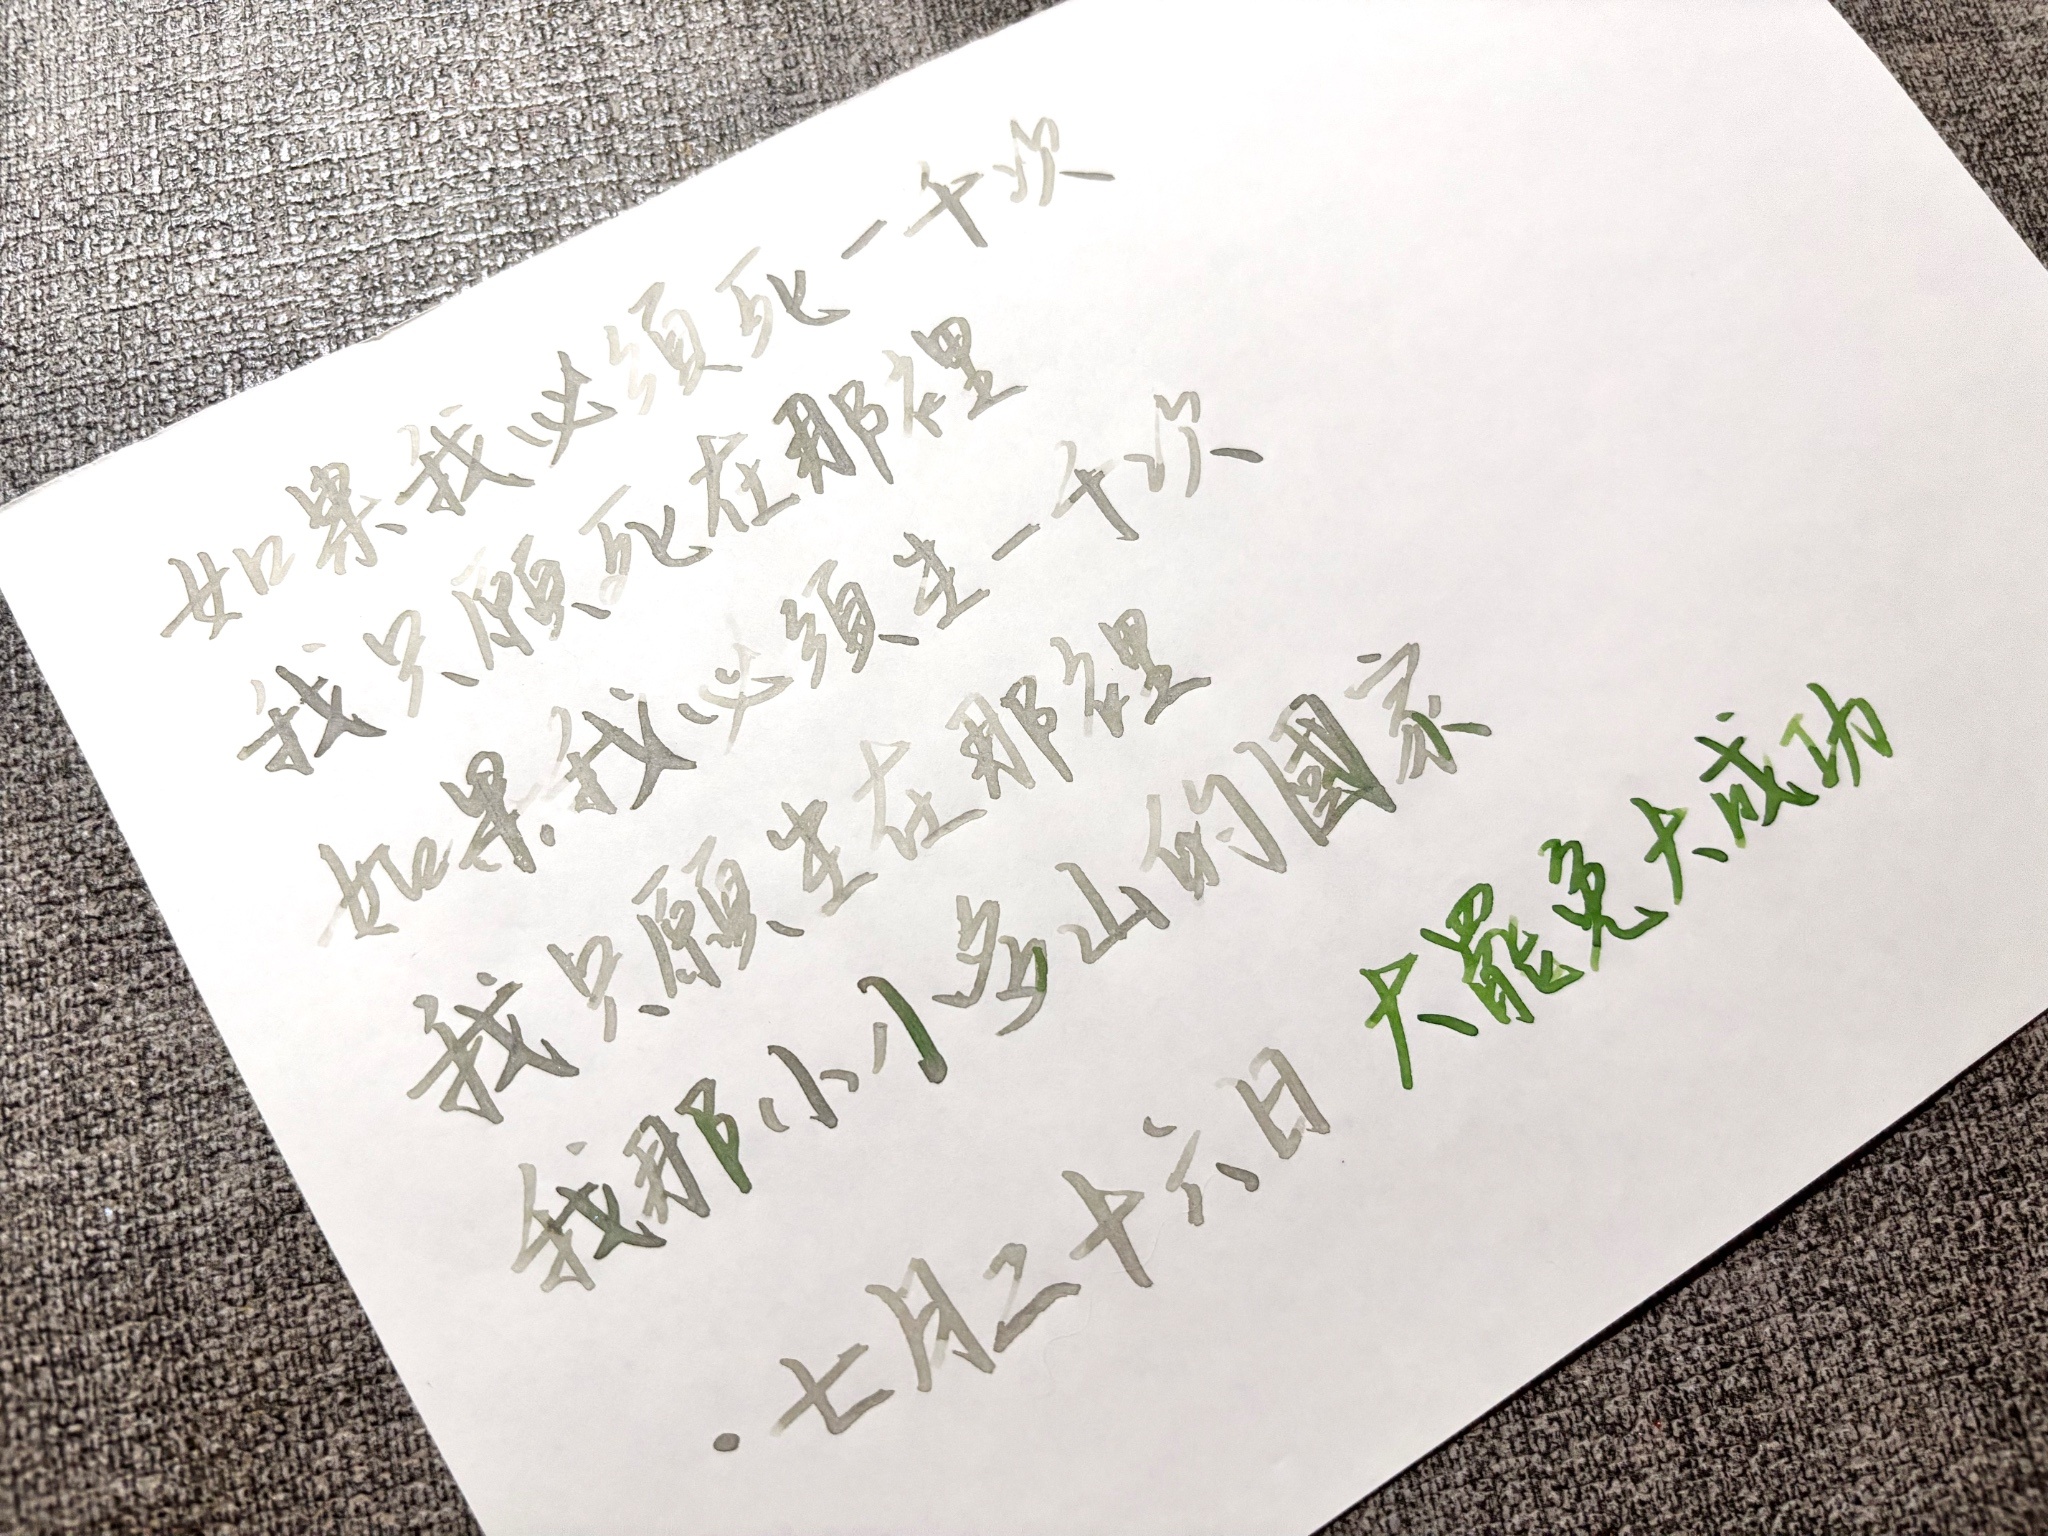 如果我必須死一千次
我只願死在那裡
如果我必須生一千次
我只願生在那裡
我那小小多山的國家
·七月二十六日 大罷免大成功